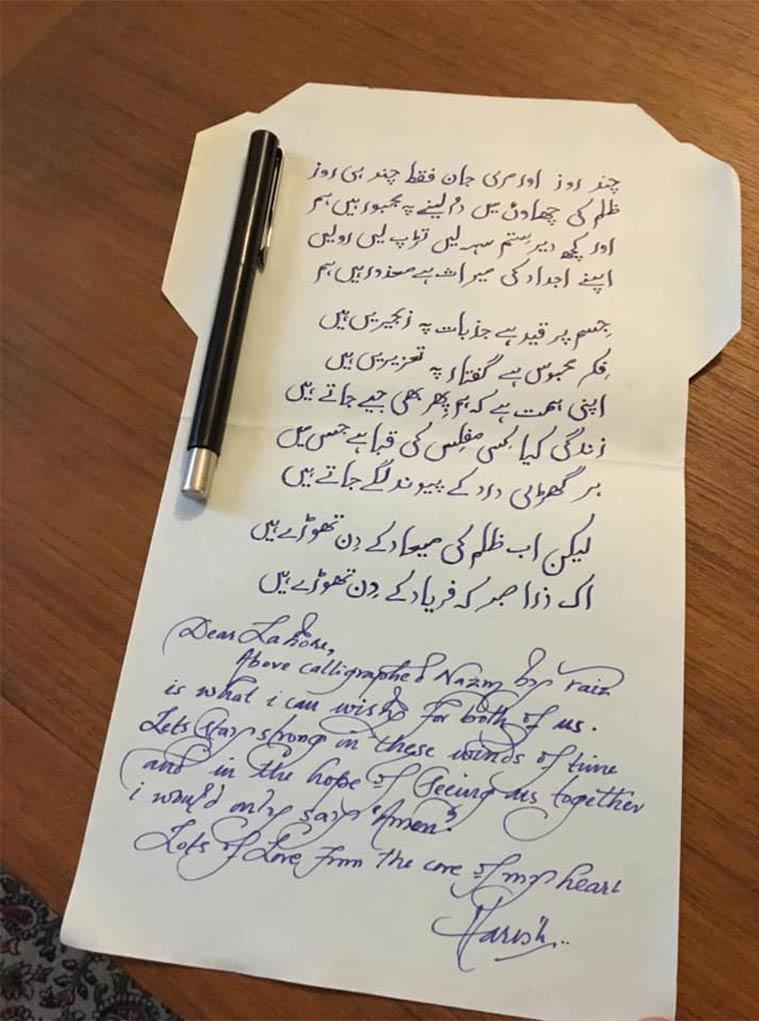 چند روز اور مری جان فقط چند ہی روز
ظلم کی چھاوں میں دم لینے پہ مجبور ہیں ہم
اور کچھ دیر ستم سہہ لیں تڑپ لیں رولیں
اپنے اجداد کی میراث ہے معذور ہیں ہم
جِسم پر قید ہے جذبات پہ زنجیریں ہیں
فِکر محبوس ہے گفتار پہ تعزیریں ہیں
اپنی ہمت ہے کہ ہم پھر بھی جیے جاتے ہیں
زندگی کیا کِسی مفلِس کی قبا ہے جس میں
ہر گھڑی درد کے پیوند لگے جاتے ہیں
لیکن اب ظلم کی میعاد کے دِن تھوڑے ہیں
اک ذرا صبر کہ فریاد کے دِن تھوڑے ہیں
Dear Lahore,
Above calligraphed Nazm by Faiz
is what i can wish for both of us.
Lets stay strong in these winds of time
and in the hope of Seeing us together
i would only say "Amen".
Lots of Love from the core of my heart
Harish..